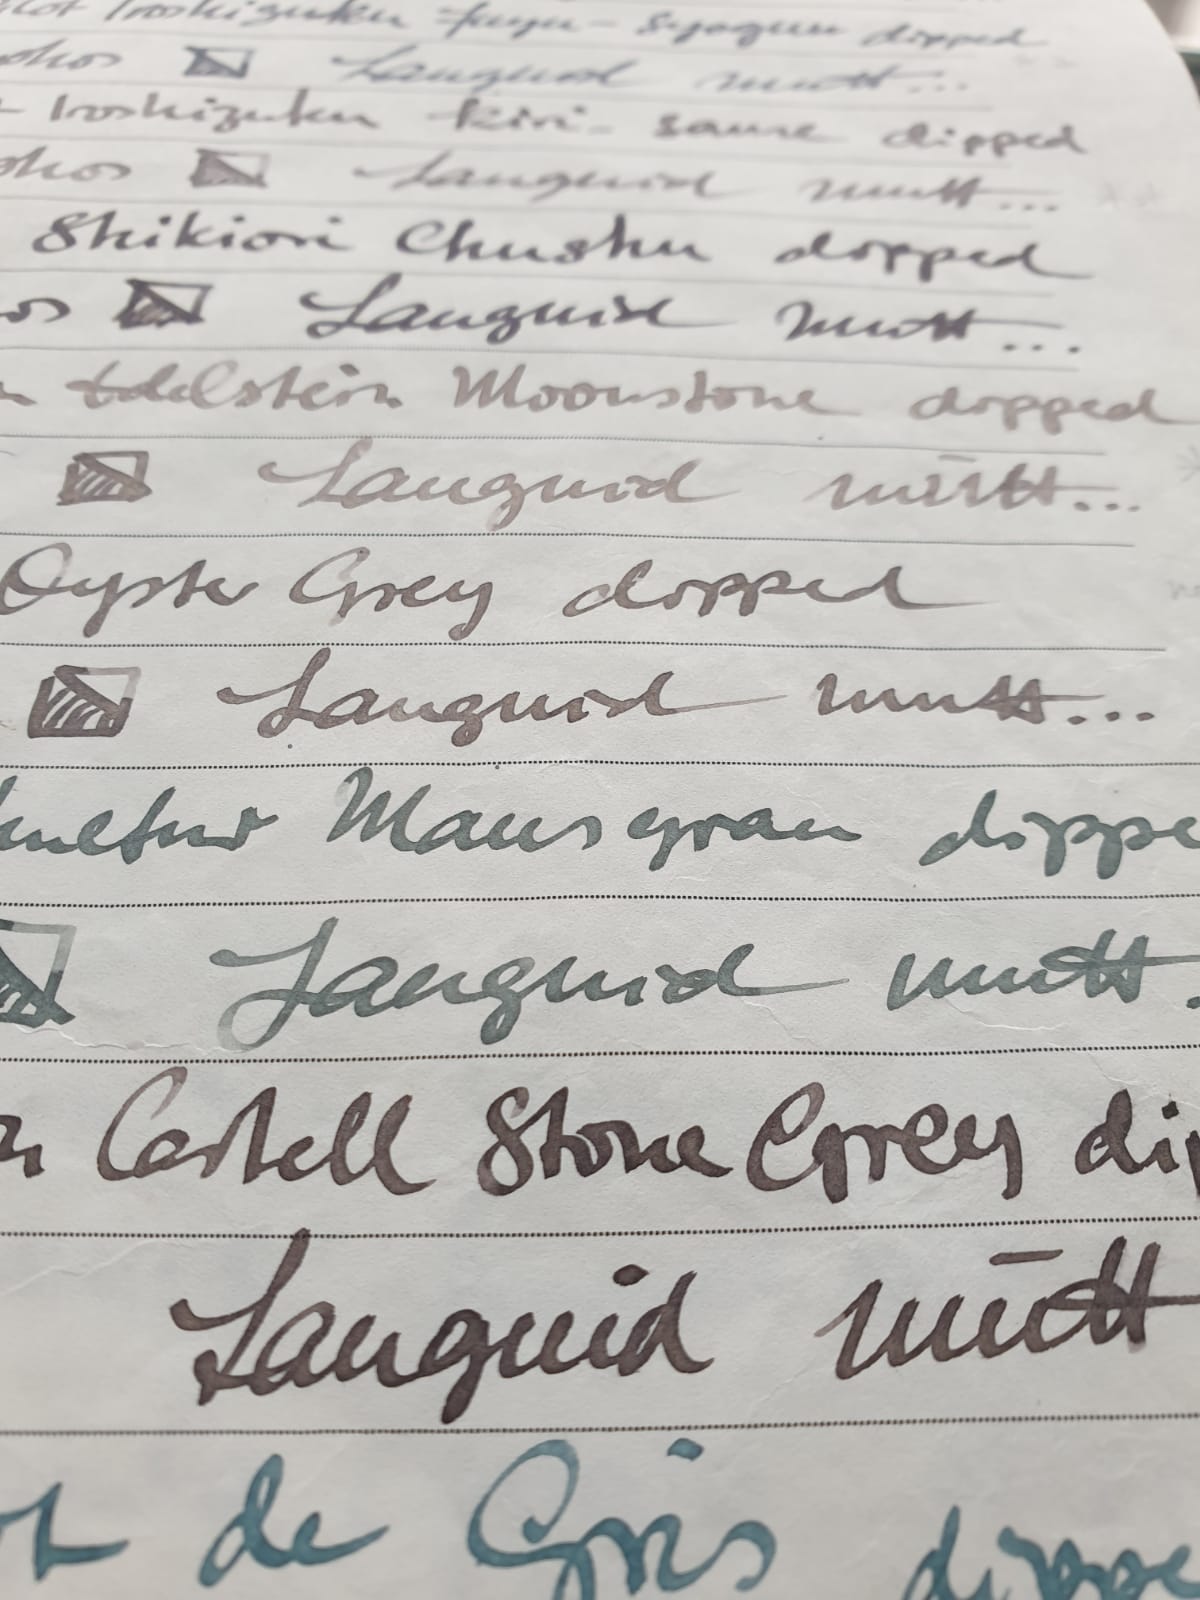 Iroshizuku fuyu - syogun dipped
Languid mutt...
Iroshizuku kiri - same dipped
Languid mutt...
Shikiori Chushu dipped
Languid mutt...
Edelstein Moonstone dipped
Languid mutt...
Oyster Grey dipped
Languid mutt...
Mausgrau dippe
Languid mutt.
Castell Stone Grey dip
Languid mutt
de Gris dippe